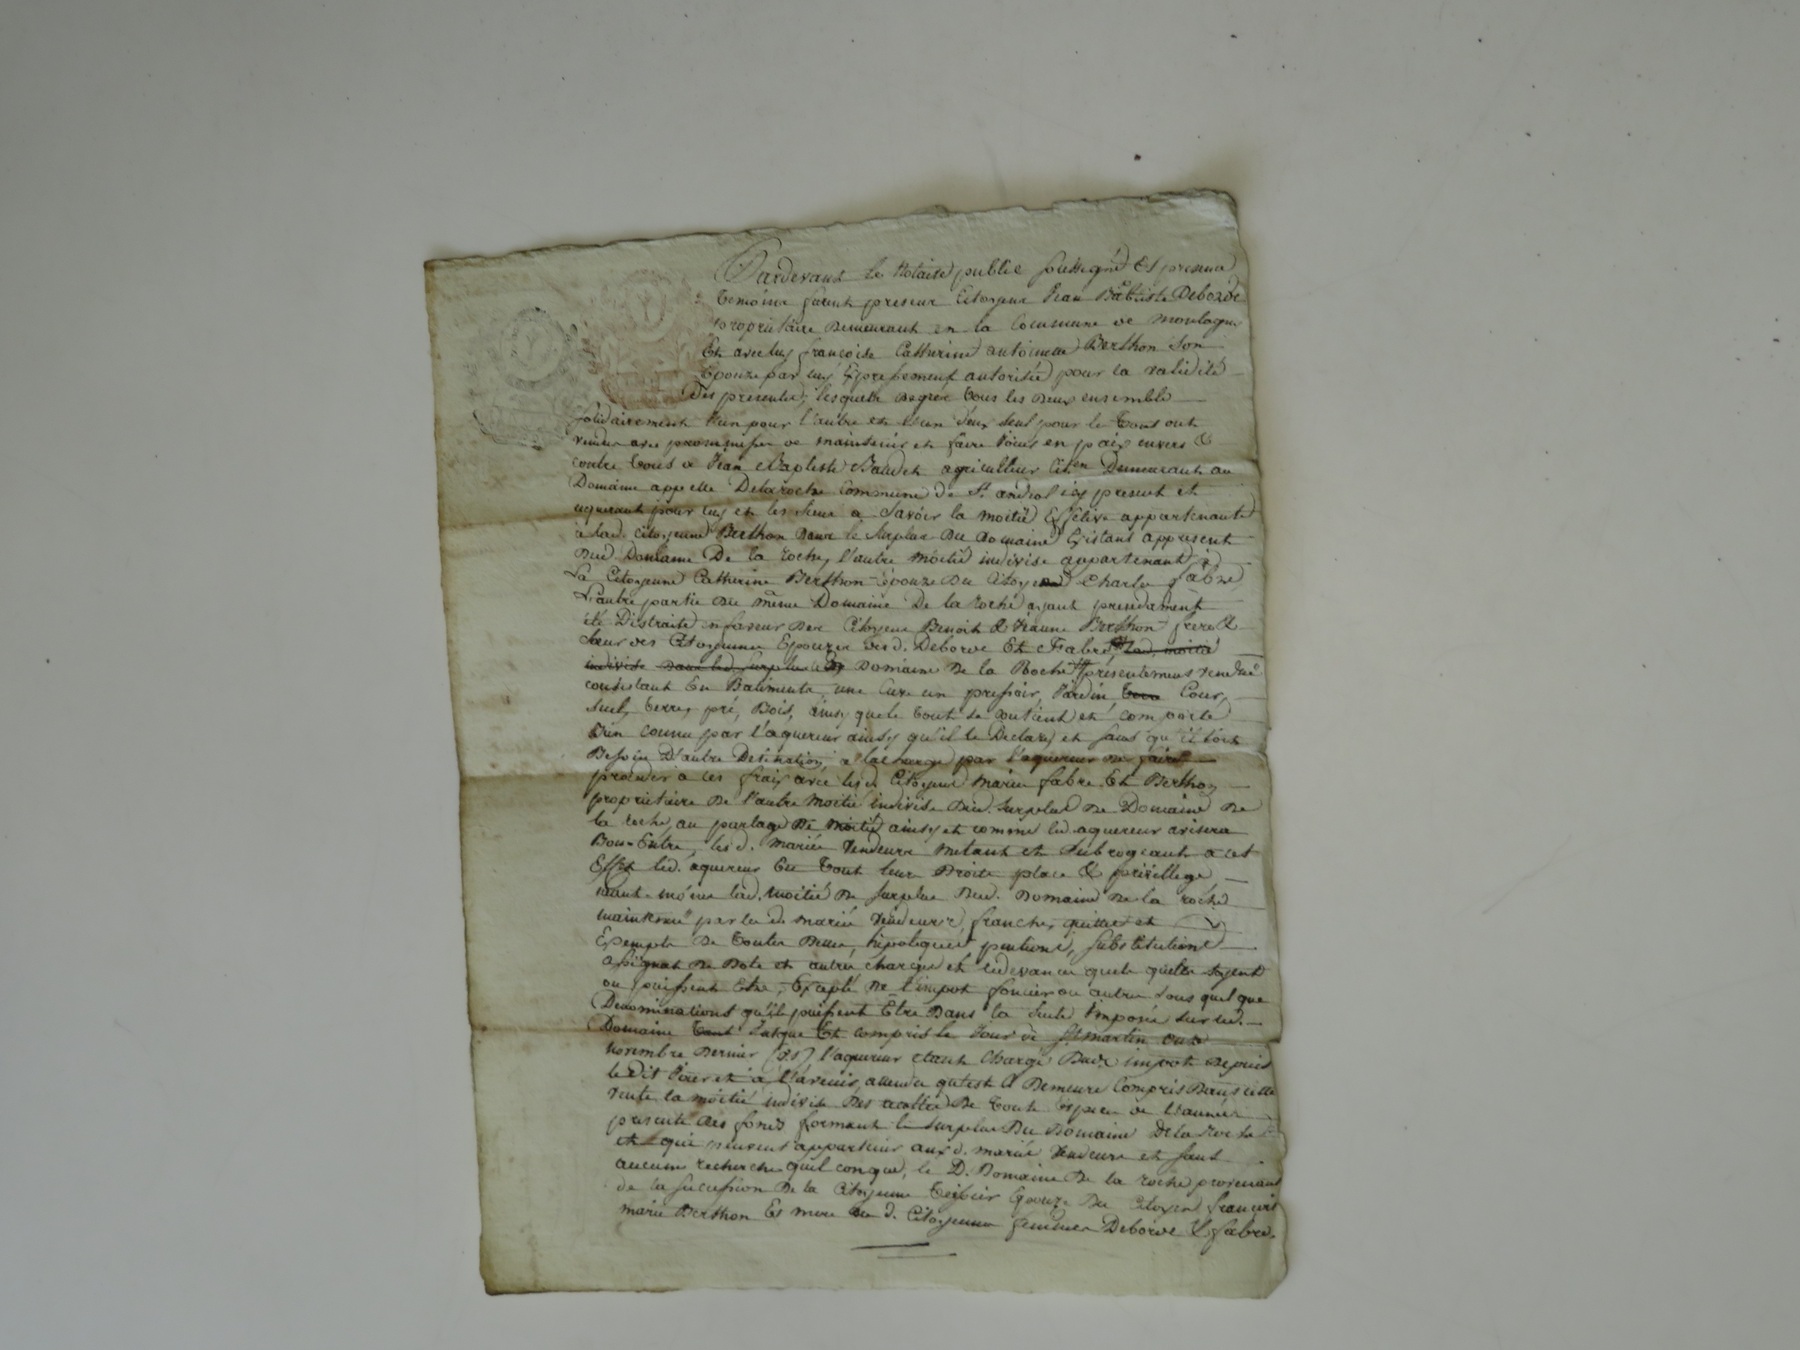 Pardevant le Notaire public soussigné Et presence
temoins furent presens Citoyens Jean Baptiste Deborde
proprietaire Demeurant en la Commune de Montagny
Et avec luy françoise Catherine antoinette Berthon Son
Epouze par luy Expressement autorisée pour la validité
Des presentes, lesquels degrés tous les Deux ensemble
solidairement l'un pour l'autre et l'un d'eux seul pour le tout ont
vendu avec promesse de maintenir et faire jouir en paix envers &
contre tous a Jean Baptiste Baudet agriculteur Citen Demeurant au
Domaine appelle Delaroche Commune de St andeol icy present et
aquerant pour luy et les siens a Savoir la moitié Effective appartenante
a lad. citoyenne Berthon dans le surplus Du Domaine Existant appresent
Dud Domaine De la roche, l'autre moitié indivise appartenant à
La Citoyenne Catherine Berthon épouze Du Citoyen Charles fabre,
L'autre partie du même Domaine De la roche ayant precedament
été Distraite en faveur des Citoyens Benoit & Jeanne Berthon frere &
Sœur des Citoyennes Epouzes desd. Deborde Et Fabre, lad. moitié
indivise dans led. surplus du Domaine de la Roche presentement vendue
consistant En Batiments, une Cuve un pressoir, Jardin, Cour,
Suel, terres, pré, Bois, ainsy que le tout se contient et comporte
Bien connu par l'aquereur ainsy qu'il le Declare, et sans qu'il soit
Besoin D'autre Designation, a la charge par l'aquereur de faire
proceder a ses frais avec lesd Citoyens Mariés fabre Et Berthon
proprietaire de l'autre Moitié indivise dud. surplus de Domaine de
la roche, au partage De Moitié ainsy et comme led. aquereur avisera
Bon-Entre, lesd. Mariés Vendeurs Metant et subrogeant a cet
Effet led. aquereur En tout leurs Droits place & privillege
lad. Moitié De surplus Dud. Domaine De la roche
par les d. Mariés Vendeurs, franche, quitte et
Exempte De toutes Dettes, hipoteques pentions, substitutions
assignat de Dote et autres charges et redevances quels quelles soyent
ou puissent Etre, Excepté De l'impot foncier ou autres sous quelque
Denominations qu'ils puissent Etre Dans la seule imposée sur led.
Domaine Jusque Et compris le Jour de St martin onze
Novembre Dernier (V.S) l'aquereur etant Chargé Dud. impot Depuis
le Dit Jour et a l'avenir, attendu qu'est & Demeure Compris Dans cette
vente la moitié indivise des recoltes De toute Espece de l'année
presente des fonds formant le surplus Du Domaine De la Roche
et qui peuvent appartenir aux d. mariés Vendeurs et sans
aucunes recherches quel conque, le D. Domaine De la roche provenant
de la succession De la Citoyenne Epouze Du Citoyen françois
marie Berthon Et mere des d. Citoyennes femmes Deborde & fabre.